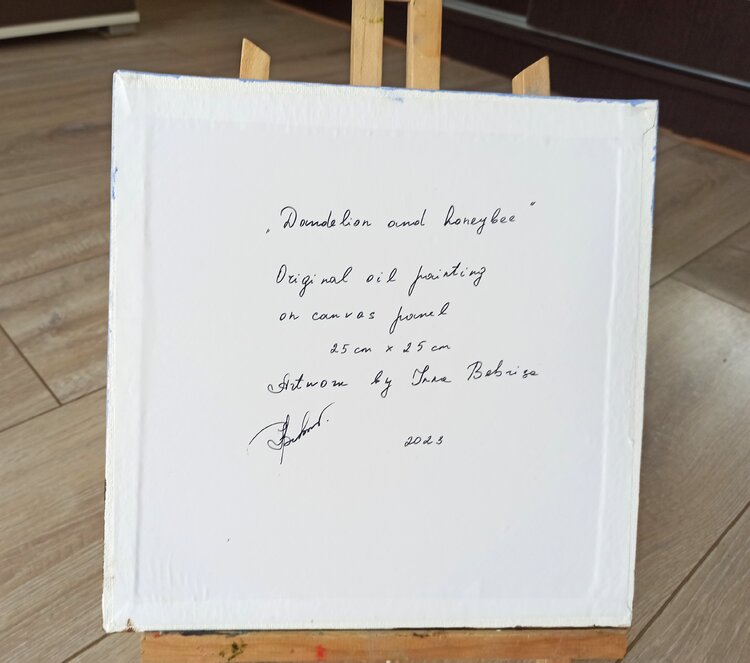 „Dandelion and honeybee"
Original oil painting
on canvas panel
25 cm x 25 cm
Artwork by Inna Bebrisa
2023